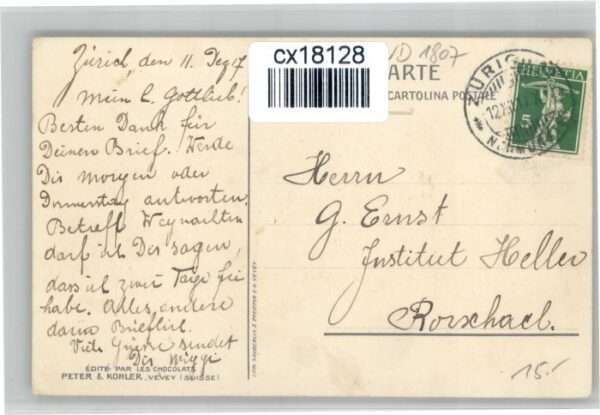 Zürich, den 11. Dez 17
Mein l. Gottlieb!
Besten Dank für
Deinen Brief. Werde
Dir morgen oder
Donnerstag antworten.
Betreff Weynachten
darf ich Dir sagen,
dass ich zwei Tage frei
habe. Alles andere
dann Brieflich.
Viele Grüsse sendet
Dir
EDITÉ PAR LES CHOCOLATS
PETER & KOHLER, VEVEY (SUISSE)
cx18128
VD 1807
CARTE
CARTOLINA POSTALE
ZÜRICH
12.XII
HELVETIA
5
Herrn
G. Ernst
Institut Heller
Rorschach.
15.-